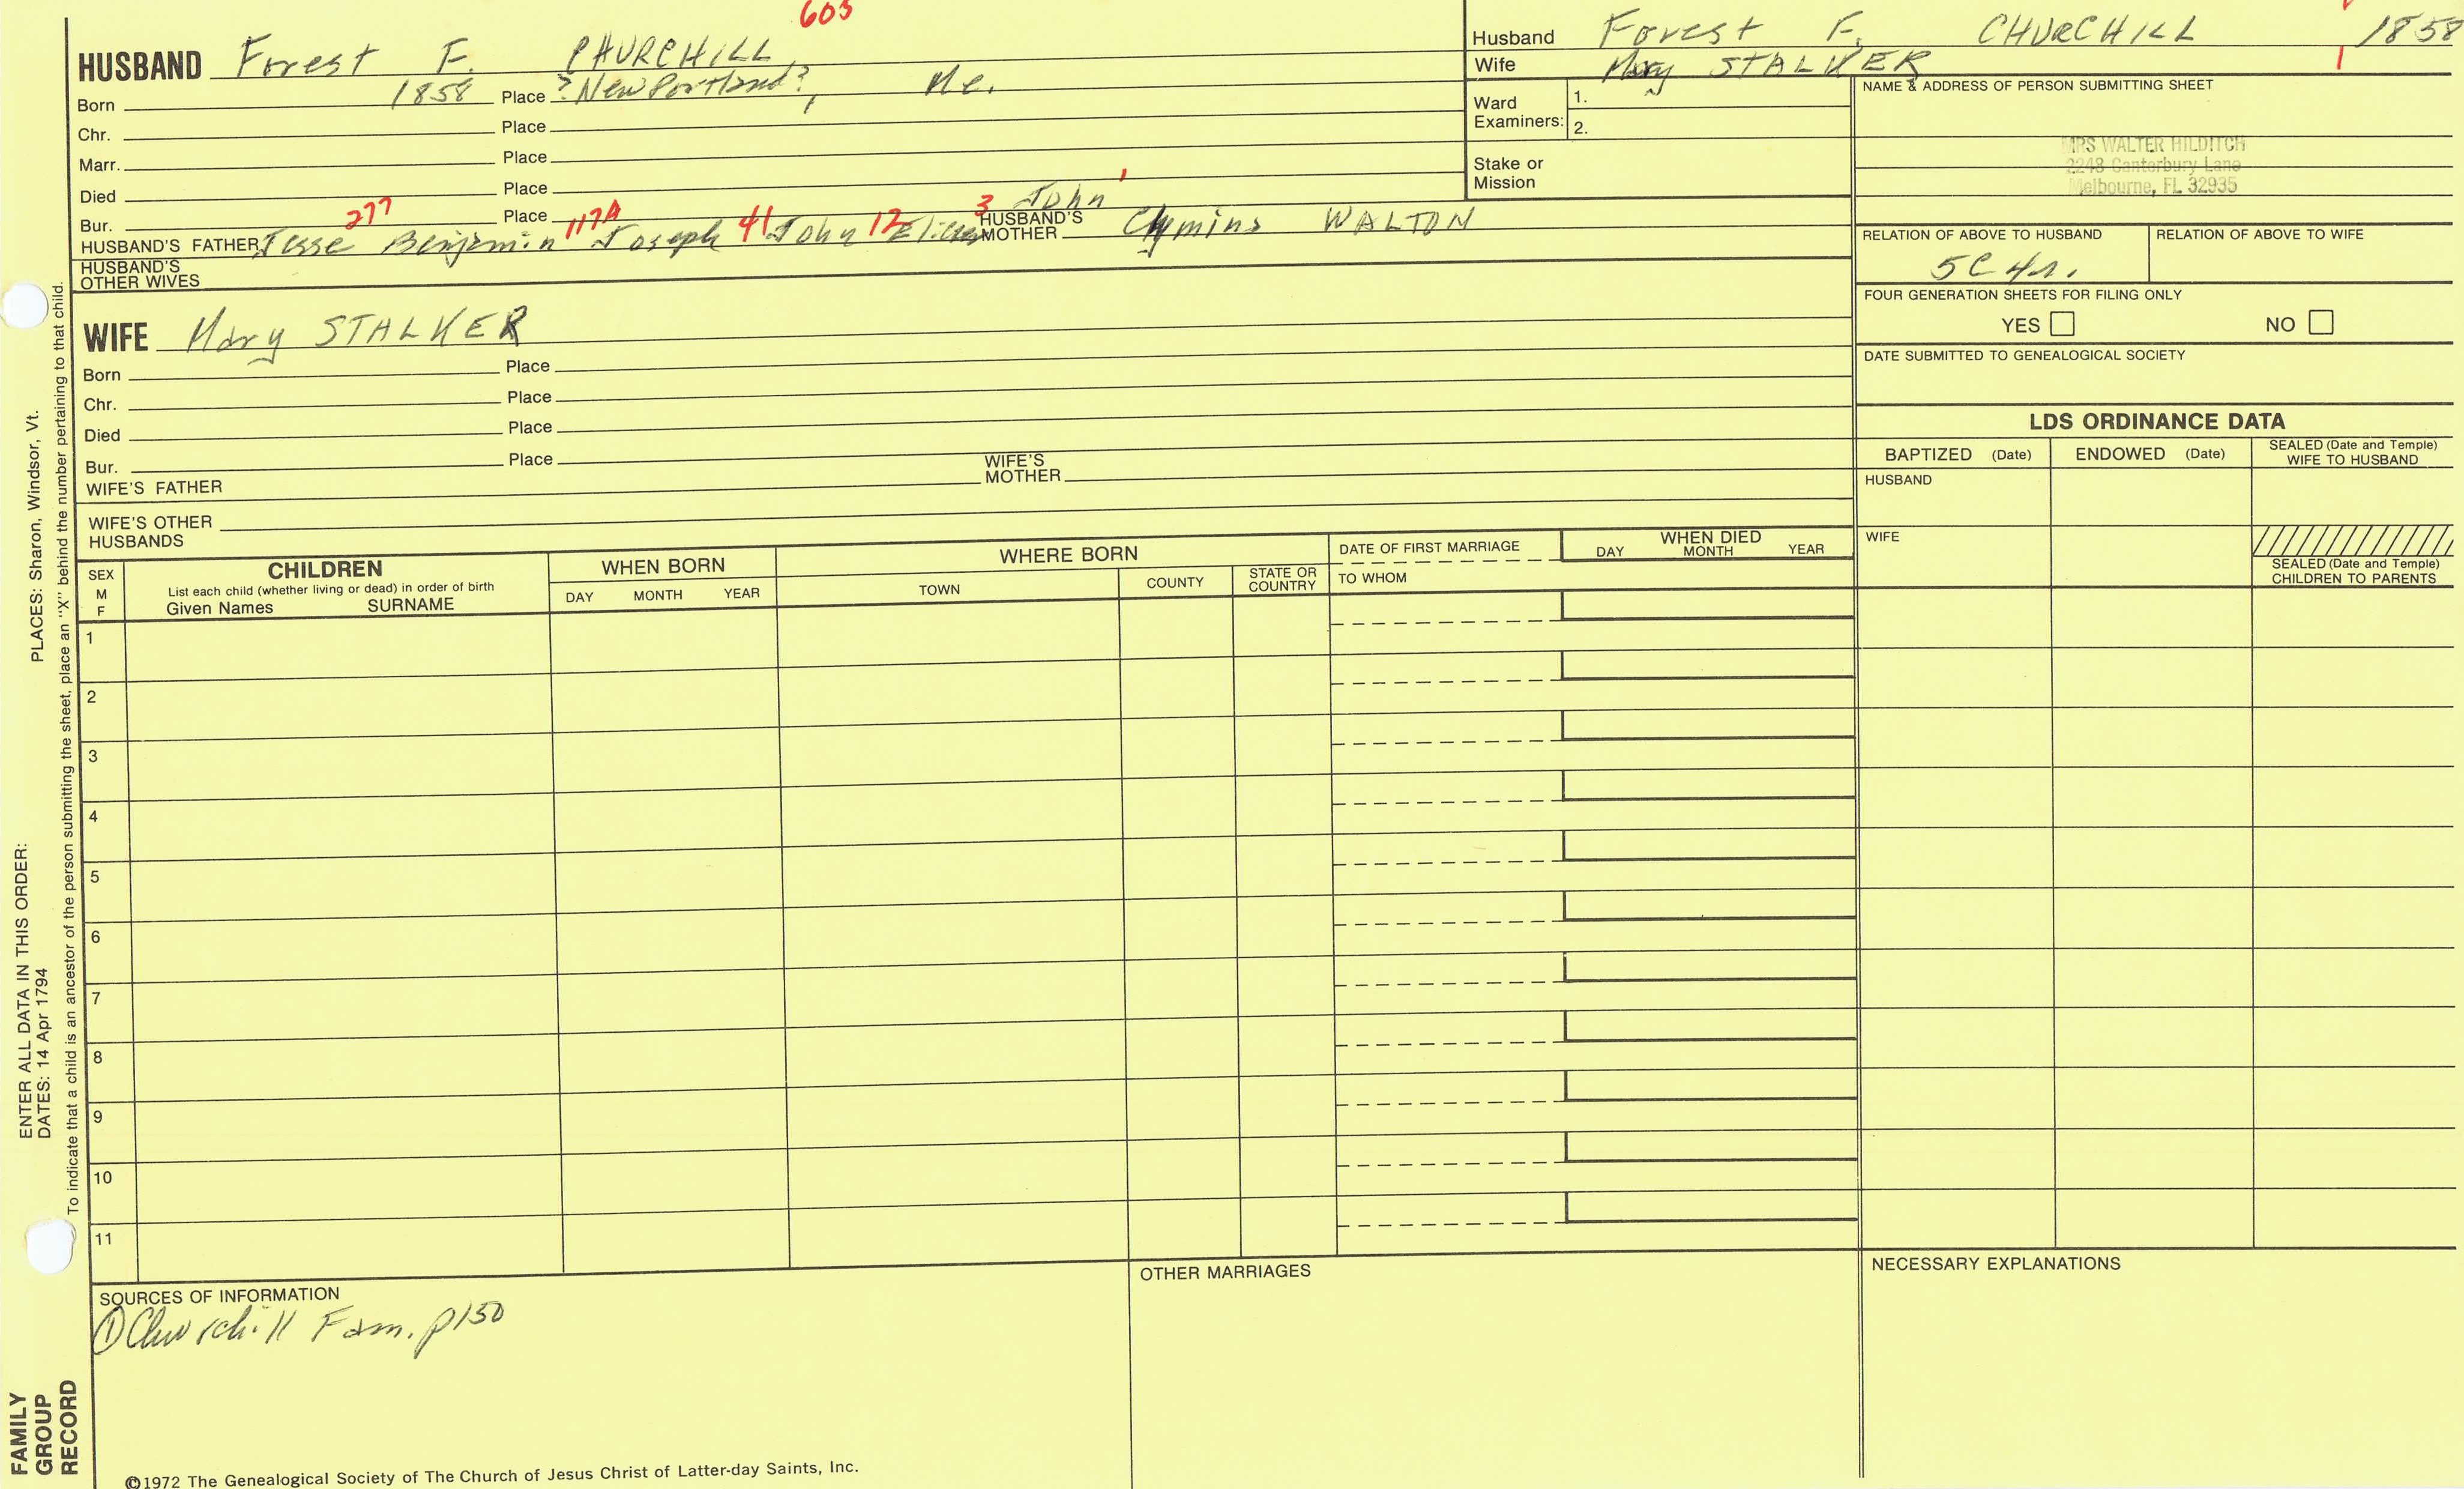 605
HUSBAND Forest F. CHURCHILL
Born 1858 Place ?New Portland?, Me.
Chr. Place
Marr. Place
Died Place
Bur. Place
277 117A 41 12 3 John 1
HUSBAND'S FATHER Jesse Benjamin Joseph John HUSBAND'S MOTHER WALTON
HUSBAND'S OTHER WIVES
Husband Forest F. CHURCHILL 1858
Wife Mary STALKER 1
Ward Examiners: 1.
2.
Stake or Mission
NAME & ADDRESS OF PERSON SUBMITTING SHEET
MRS WALTER HILDITCH
2248 Canterbury Lane
Melbourne, FL 32935
RELATION OF ABOVE TO HUSBAND RELATION OF ABOVE TO WIFE
5C 4r.
FOUR GENERATION SHEETS FOR FILING ONLY
YES NO
DATE SUBMITTED TO GENEALOGICAL SOCIETY
WIFE Mary STALKER
Born Place
Chr. Place
Died Place
Bur. Place
WIFE'S FATHER WIFE'S MOTHER
WIFE'S OTHER HUSBANDS
LDS ORDINANCE DATA
BAPTIZED (Date) ENDOWED (Date) SEALED (Date and Temple) WIFE TO HUSBAND
HUSBAND
WIFE
SEALED (Date and Temple) CHILDREN TO PARENTS
SEX M F
CHILDREN
List each child (whether living or dead) in order of birth
Given Names SURNAME
WHEN BORN
DAY MONTH YEAR
WHERE BORN
TOWN COUNTY STATE OR COUNTRY
DATE OF FIRST MARRIAGE
TO WHOM
WHEN DIED
DAY MONTH YEAR
1
2
3
4
5
6
7
8
9
10
11
SOURCES OF INFORMATION
① Churchill Fam. p150
OTHER MARRIAGES
NECESSARY EXPLANATIONS
©1972 The Genealogical Society of The Church of Jesus Christ of Latter-day Saints, Inc.
FAMILY GROUP RECORD
ENTER ALL DATA IN THIS ORDER:
DATES: 14 Apr 1794
PLACES: Sharon, Windsor, Vt.
To indicate that a child is an ancestor of the person submitting the sheet, place an "X" behind the number pertaining to that child.